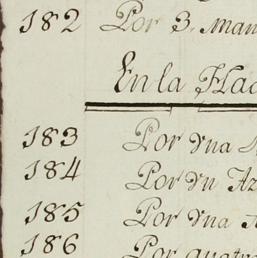 182 Por 3. Man
En la Hac
183 Por vna
184 Por vn Az
185 Por vna
186 Por quatr